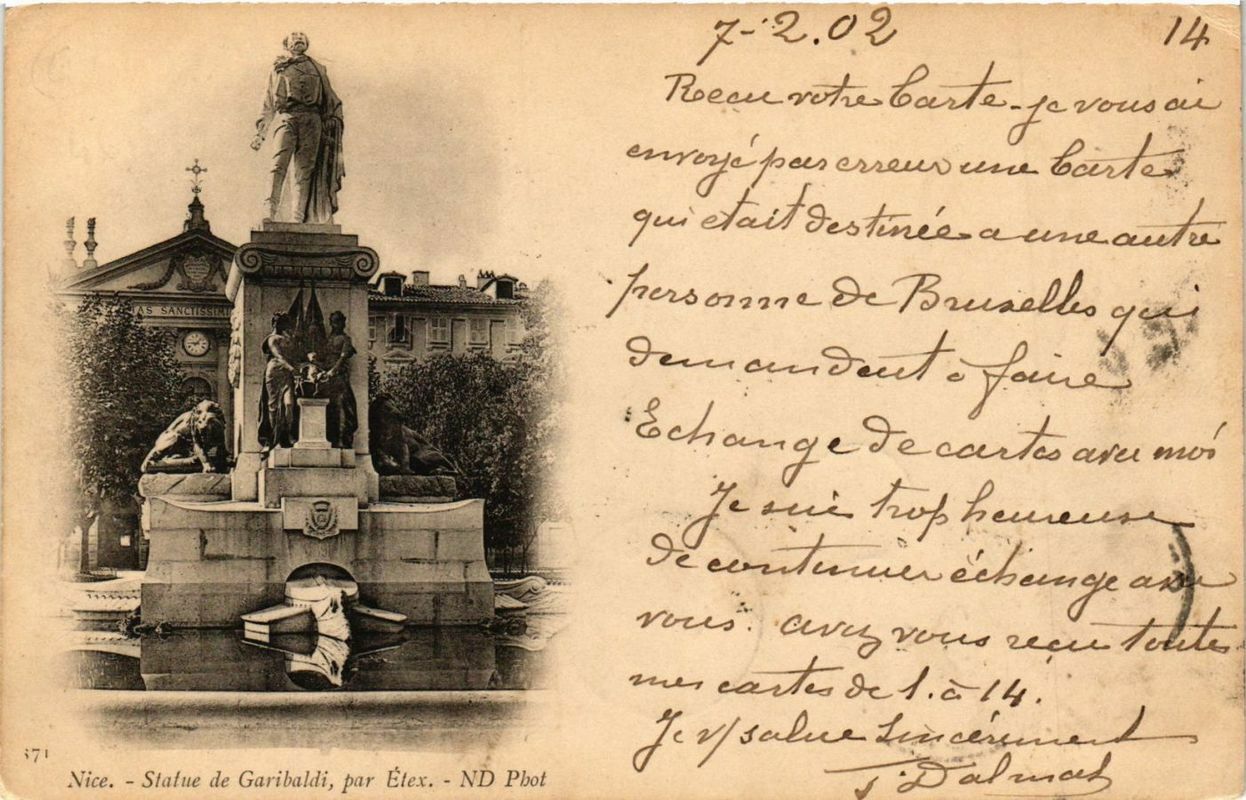 7-2.02
14
Recu votre Carte - je vous ai
envoyé par erreur une Carte
qui etait destinée a une autre
personne de Bruxelles qui
demandent à faire
Echange de cartes avec moi
Je suis trop heureuse
de continuer échange avec
vous. avez vous reçu toutes
mes cartes de 1. à 14.
Je v/ salue Sincérement
Dalmas
AS SANCTISSIM
371
Nice. - Statue de Garibaldi, par Étex. - ND Phot